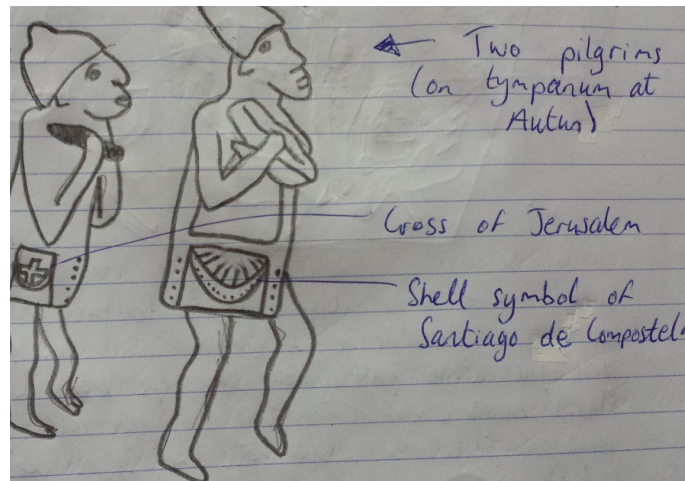 Two pilgrims
(on tympanum at
Autun)
Cross of Jerusalem
Shell symbol of
Santiago de Compostela